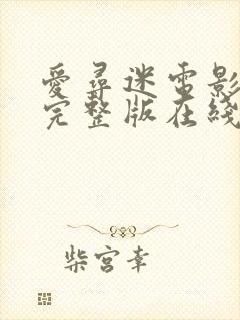 愛尋迷電影
完整版在綫
柴宮幸